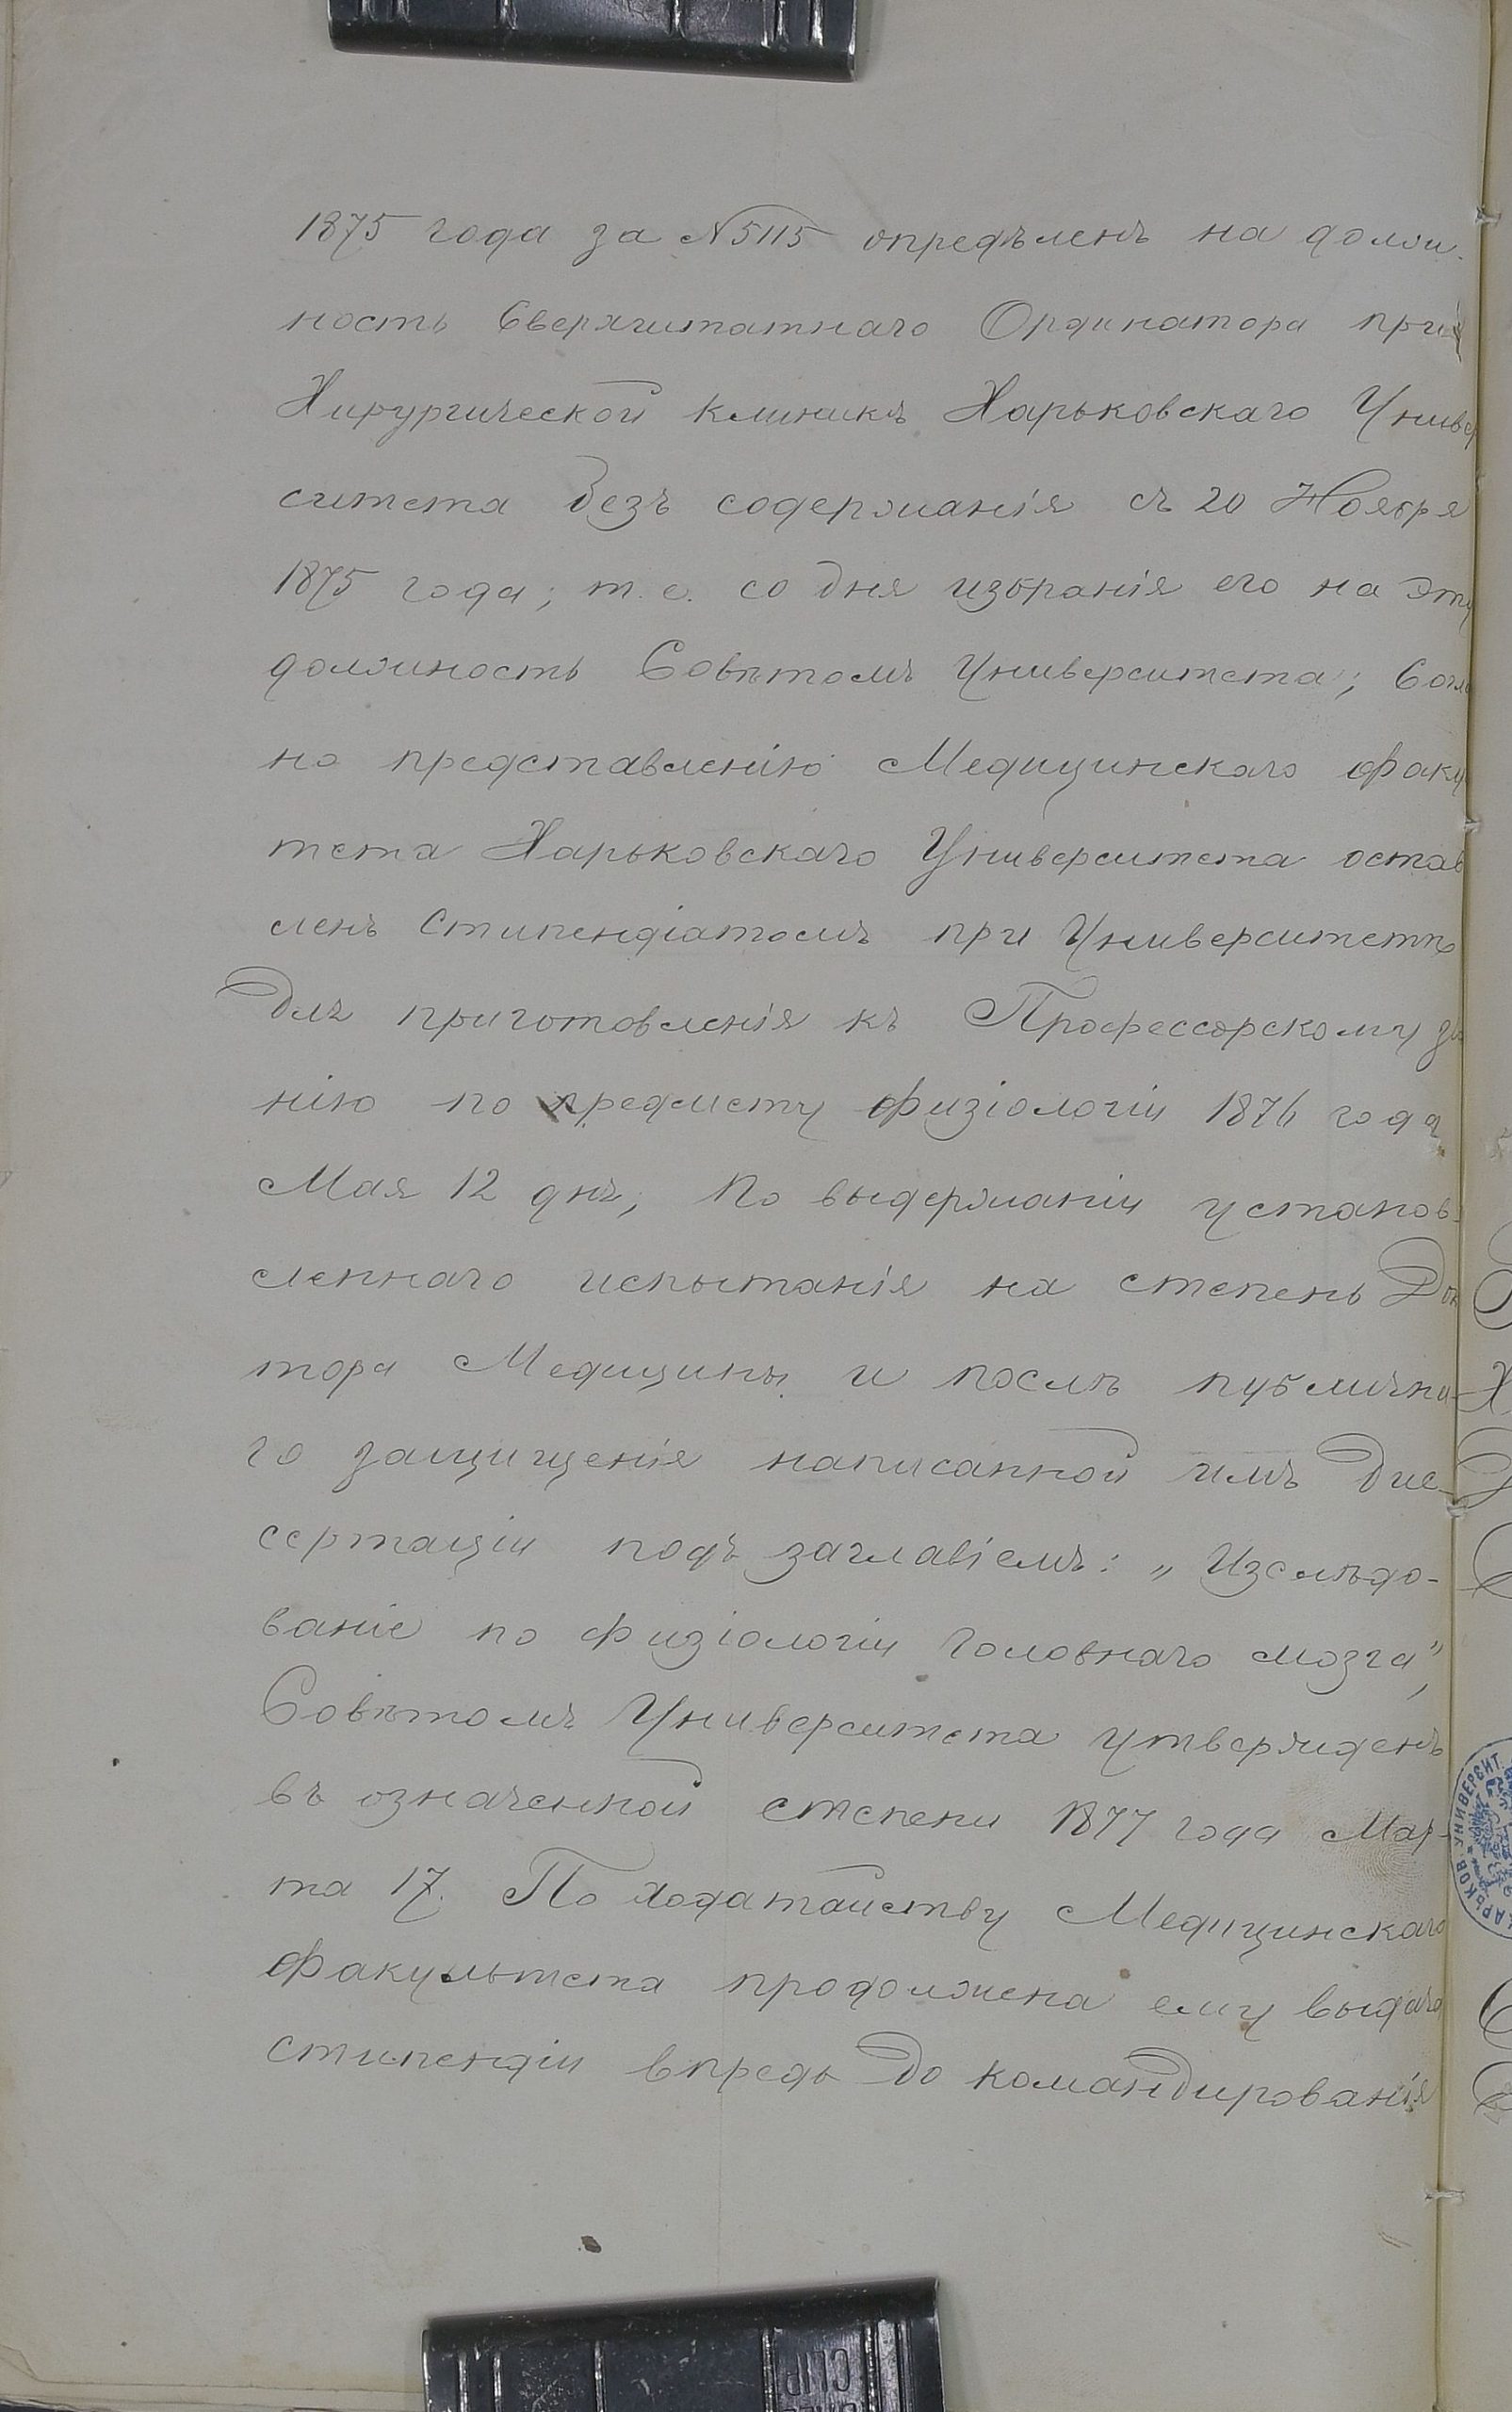 1875 года за №5115 опредѣленъ на долж-
ность Сверхштатнаго Ординатора при
Хирургической клиникѣ Харьковскаго Универ
ситета безъ содержанія съ 20 Ноября
1875 года; т. е. со дня избранія его на эту
должность Совѣтомъ Университета; Соглас
но представленію Медицинскаго факуль
тета Харьковскаго Университета остав
ленъ Стипендіатомъ при Университетѣ
для приготовленія къ Профессорскому зва
нію по предмету физіологіи 1876 года
Мая 12 дня; По выдержаніи установ-
леннаго испытанія на степень Док
тора Медицины и послѣ публична-
го защищенія написанной имъ Дис-
сертаціи подъ заглавіемъ: „Изслѣдо-
ваніе по физіологіи головнаго мозга",
Совѣтомъ Университета утвержденъ
въ означенной степени 1877 года Мар-
та 17. По ходатайству Медицинскаго
факультета продолжена ему выдача
стипендіи впредь до командированія
ХАРЬКОВ. УНИВЕРСИТ.
CLIP